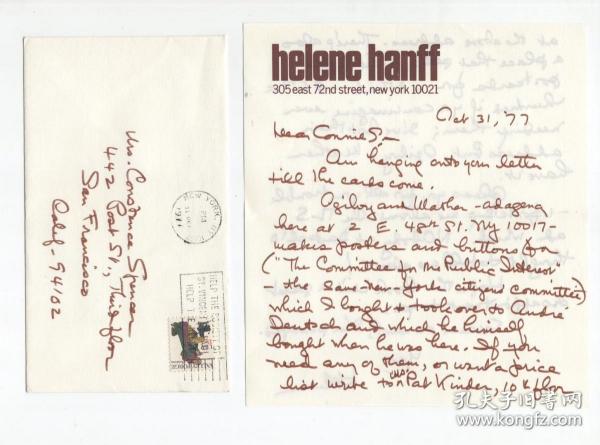 Mrs. Constance Spencer
442 Post St., Third floor
San Francisco
Calif - 94102
NEW YORK, N.Y.
PM
31 OCT
1977
HELP THE
ST. VINCENT
HELP THE
helene hanff
305 east 72nd street, new york 10021
Oct 31, '77
Dear Connie S -
Am hanging onto your letter
till the cards come.
Ogilvy and Mather - ad agency
here at 2 E. 48th St. NY 10017 -
makes posters and buttons for
("The Committee for the Public Interest"
- the save-New-York citizens committee)
which I bought & took over to André
Deutsch and which he himself
bought when he was here. If you
need any of them, or want a price
list write to Mrs Pat Kinder, 10th floor
孔夫子旧书网
www.kongfz.com